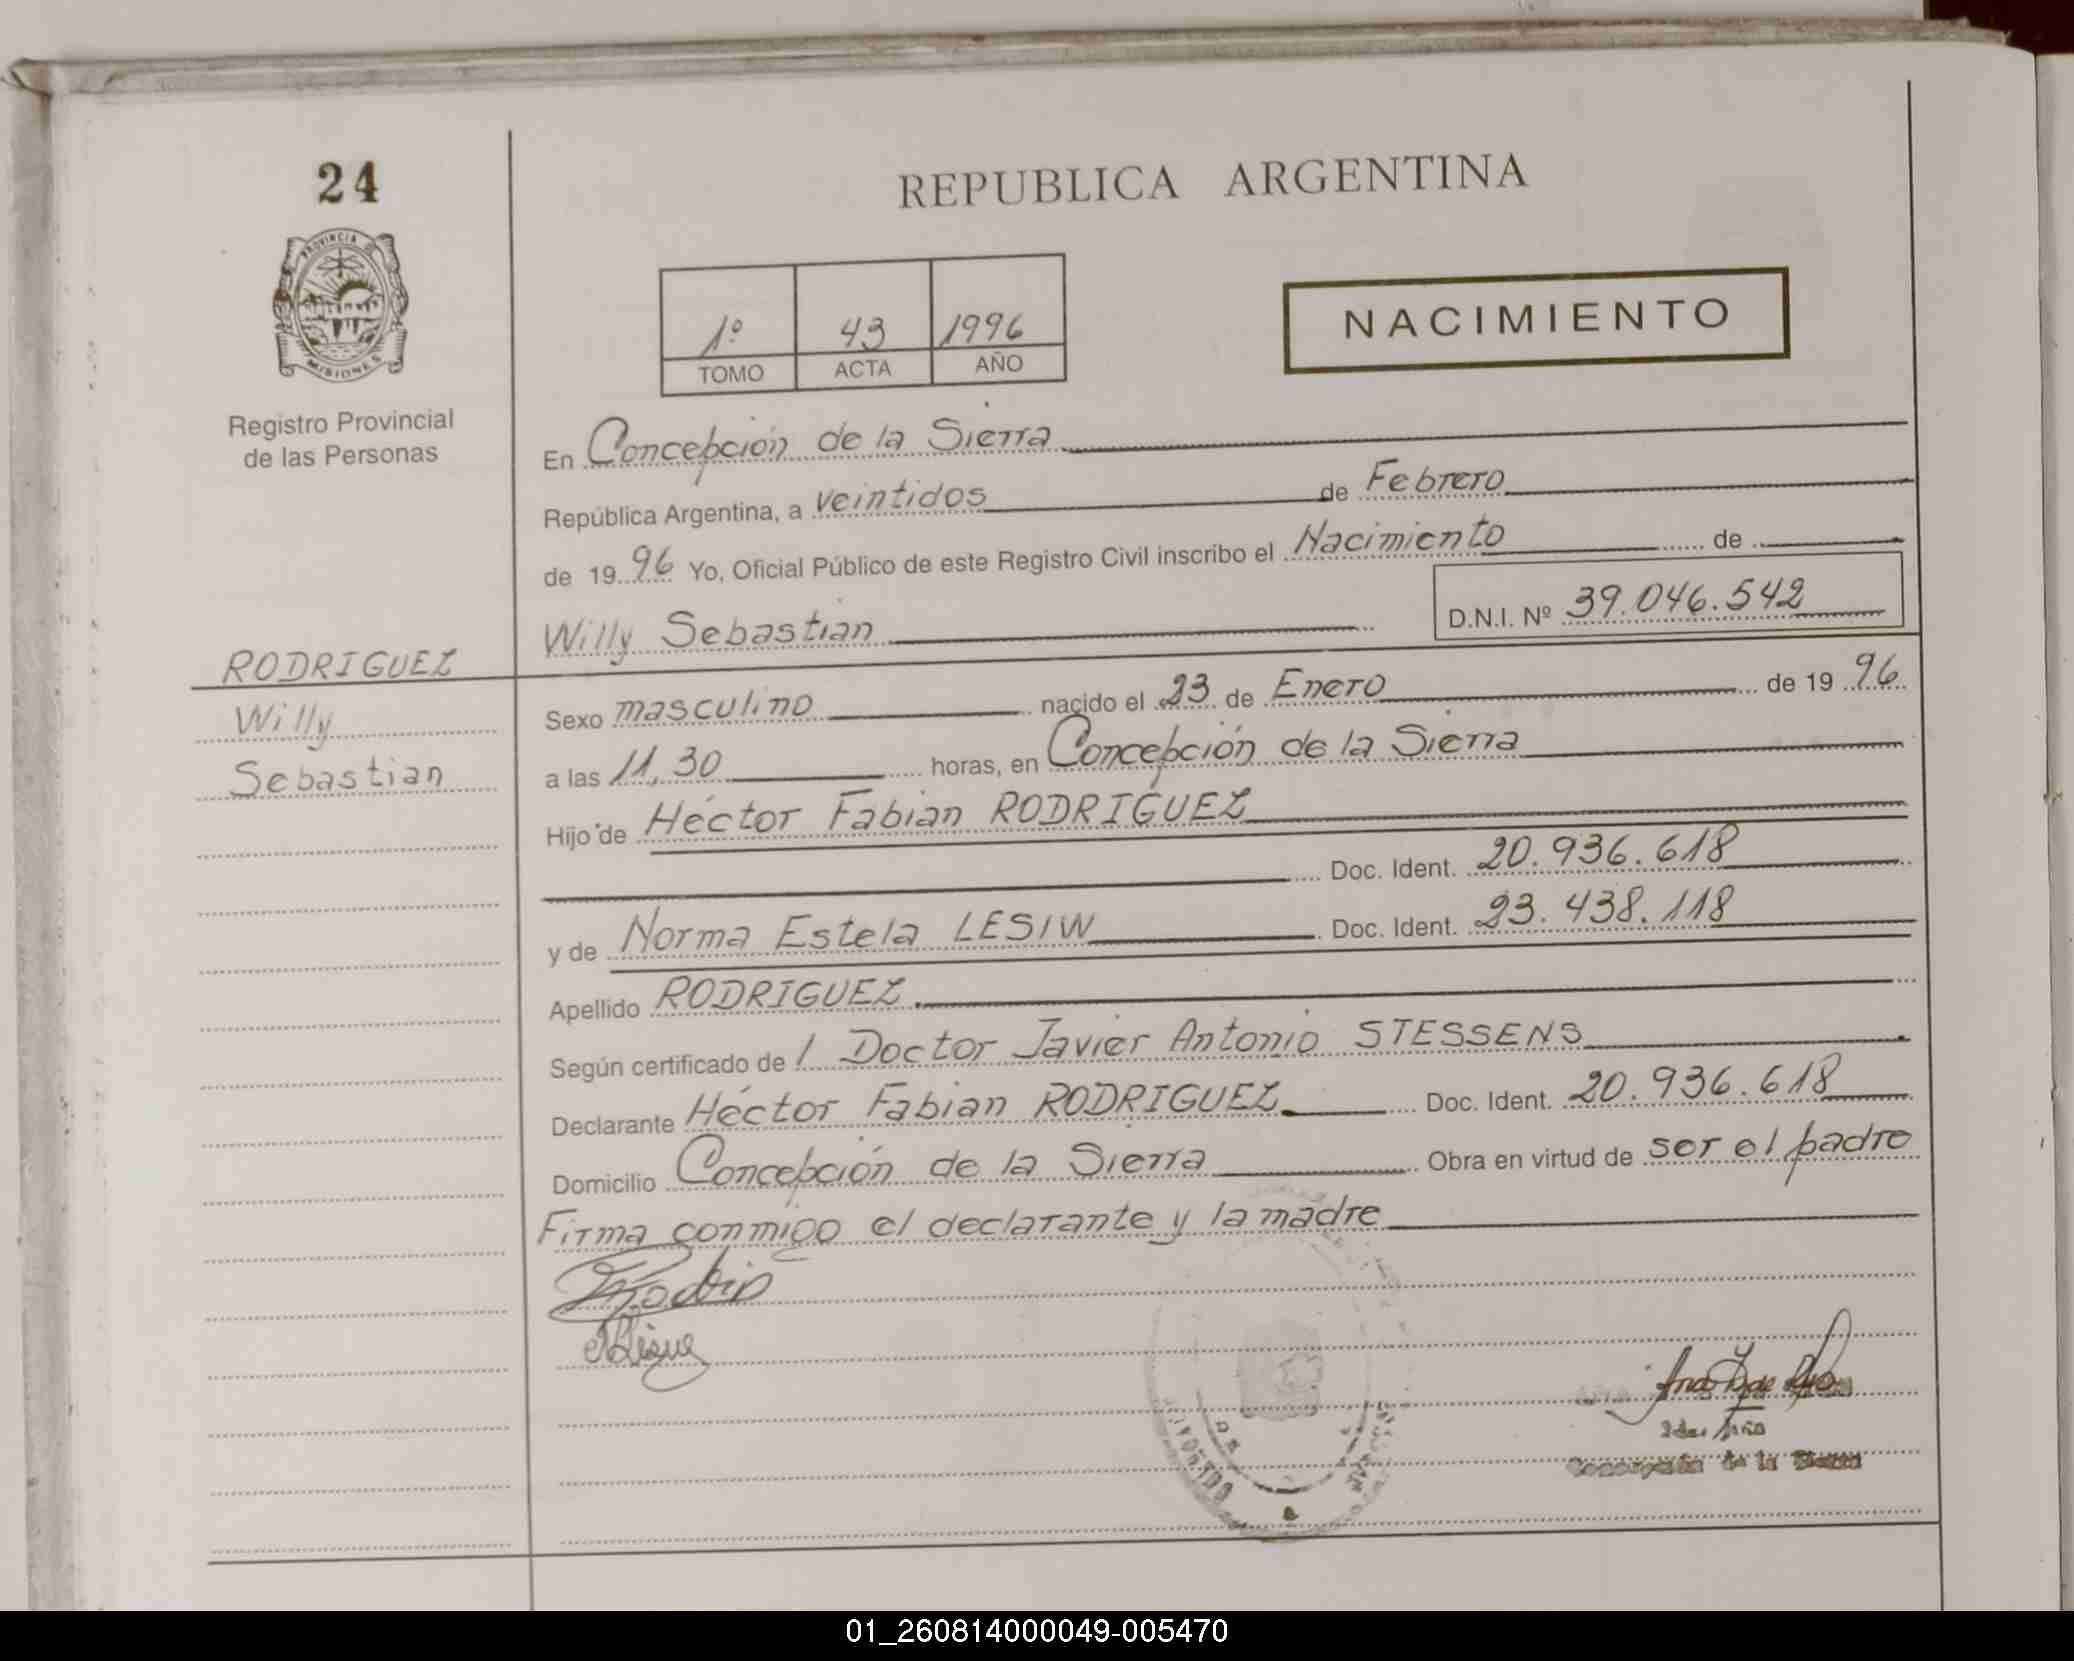 24
PROVINCIA DE
MISIONES
Registro Provincial
de las Personas
REPUBLICA ARGENTINA
1º 43 1996
TOMO ACTA AÑO
NACIMIENTO
En Concepción de la Sierra
República Argentina, a veintidos de Febrero
de 1996 Yo, Oficial Público de este Registro Civil inscribo el Nacimiento de
Willy Sebastian D.N.I. Nº 39.046.542
RODRIGUEZ
Willy
Sebastian
Sexo masculino nacido el 23 de Enero de 1996
a las 11,30 horas, en Concepción de la Sierra
Hijo de Héctor Fabian RODRIGUEZ
Doc. Ident. 20.936.618
y de Norma Estela LESIW Doc. Ident. 23.438.118
Apellido RODRIGUEZ
Según certificado de l Doctor Javier Antonio STESSENS
Declarante Héctor Fabian RODRIGUEZ Doc. Ident. 20.936.618
Domicilio Concepción de la Sierra Obra en virtud de ser el padre
Firma conmigo el declarante y la madre
Concepción de la Sierra
01_260814000049-005470